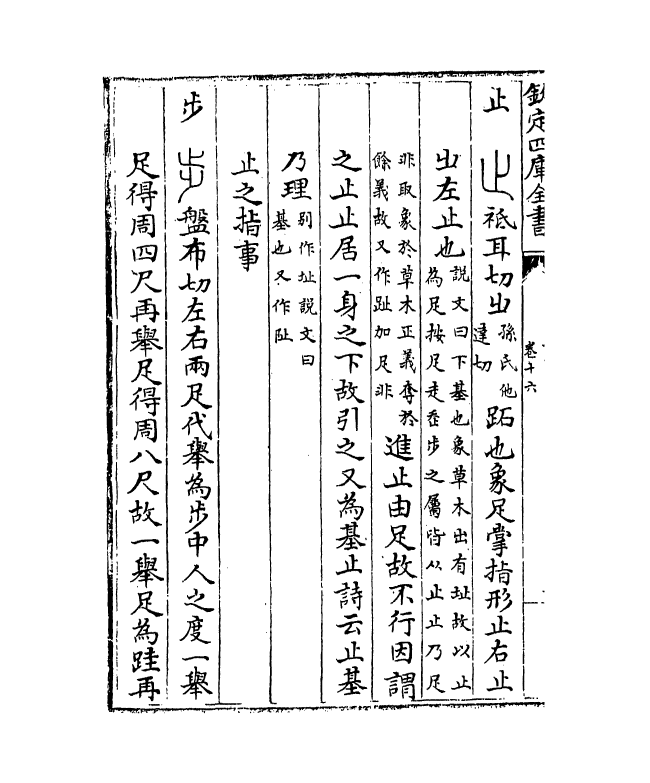 欽定四庫全書 卷十六
止 止 祗耳切𣥂孫氏他達切跖也象足掌指形止右止
𣥂左止也說文曰下基也象草木出有址故以止為足按足走癶步之屬皆从止止乃足
非取象於草木正義奪於餘義故又作趾加足非進止由足故不行因謂
之止止居一身之下故引之又為基止詩云止基
乃理别作址說文曰基也又作阯
止之指事
步 步 盤布切左右兩足代舉為步中人之度一舉
足得周四尺再舉足得周八尺故一舉足為跬再